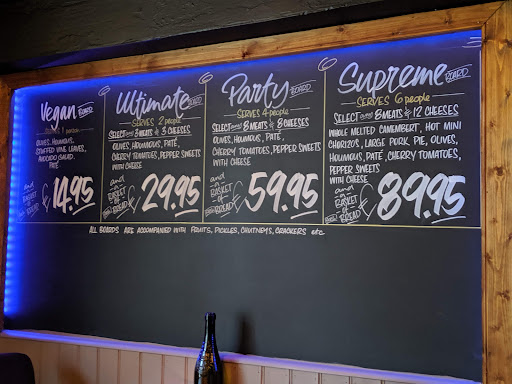 Vegan BOARD
SERVES 1 person
OLIVES, HOUMOUS,
STUFFED VINE LEAVES,
AVOCADO SALAD,
PATÉ
and
-a-
BASKET
of
BREAD
£14.95
Ultimate BOARD
SERVES 2 people
SELECT 3 MEATS & 3 CHEESES
OLIVES, HOUMOUS, PATÉ,
CHERRY TOMATOES, PEPPER SWEETS
WITH CHEESE
and
-a-
BASKET
of
BREAD
£29.95
Party BOARD
SERVES 4 people
SELECT 8 MEATS & 8 CHEESES
OLIVES, HOUMOUS, PATÉ,
CHERRY TOMATOES, PEPPER SWEETS
WITH CHEESE
and
-a-
BASKET
of
BREAD
£59.95
Supreme BOARD
SERVES 6 people
SELECT 8 MEATS & 12 CHEESES
WHOLE MELTED CAMEMBERT, HOT MINI
CHORIZOS, LARGE PORK PIE, OLIVES,
HOUMOUS, PATÉ, CHERRY TOMATOES,
PEPPER SWEETS
WITH CHEESE
and
-a-
BASKET
of
BREAD
£89.95
ALL BOARDS ARE ACCOMPANIED WITH FRUITS, PICKLES, CHUTNEYS, CRACKERS etc